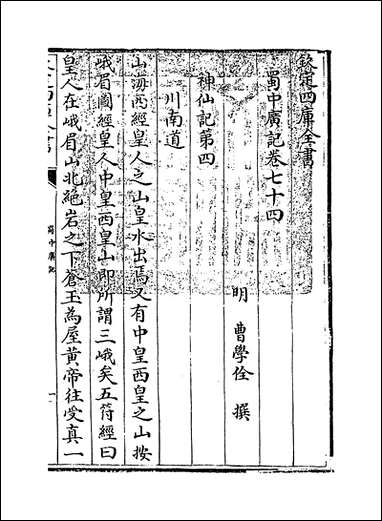 欽定四庫全書
蜀中廣記卷七十四
明 曹學佺 撰
神仙記第四
川南道
山海西經皇人之山皇水出焉又有中皇西皇之山按
峨眉圖經皇人中皇西皇山即所謂三峨矣五符經曰
皇人在峨眉山北絶岩之下蒼玉為屋黄帝往受真一
蜀中廣記